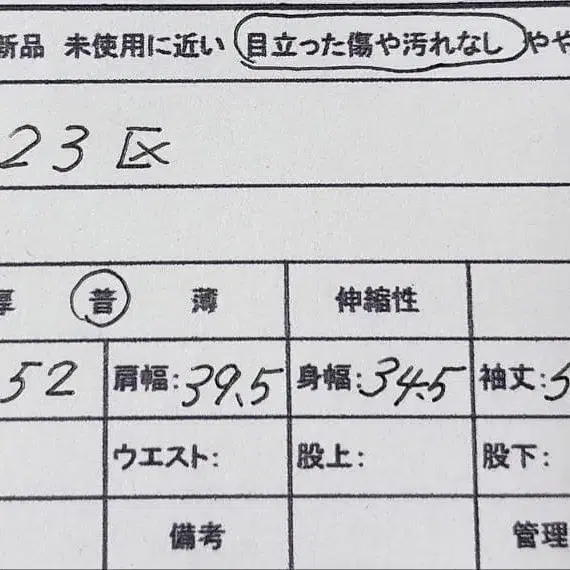 新品 未使用に近い 目立った傷や汚れなし やや
23区
普 薄 伸縮性
52 肩幅:39.5 身幅:34.5 袖丈:
ウエスト: 股上: 股下:
備考 管理